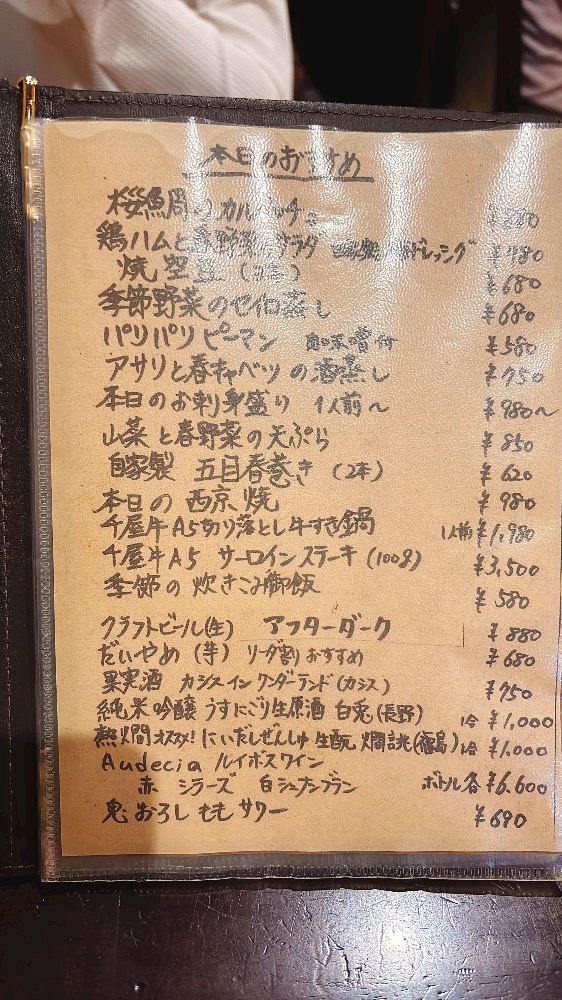 本日のおすすめ
桜鯛のカルパッチョ ¥880
鶏ハムと春野菜のサラダ ドレッシング ¥980
焼空豆 ¥680
季節野菜のセイロ蒸し ¥680
パリパリピーマン 肉味噌付 ¥580
アサリと春キャベツの酒蒸し ¥750
本日のお刺身盛り 1人前〜 ¥980〜
山菜と春野菜の天ぷら ¥850
自家製 五目春巻き (2本) ¥620
本日の西京焼 ¥980
千屋牛A5切り落とし牛すき鍋 1人前 ¥1,980
千屋牛A5 サーロインステーキ (100g) ¥3,500
季節の炊きこみ御飯 ¥580
クラフトビール(生) アフターダーク ¥880
だいやめ (芋) ソーダ割りおすすめ ¥680
果実酒 カシスインワンダーランド(カシス) ¥750
純米吟醸 うすにごり生原酒 白兎(長野) 1合 ¥1,000
熱燗オススメ! にいだしぜんしゅ 生酛 燗誂(福島) 1合 ¥1,000
Audecia ルイボスワイン
赤 シラーズ 白 シュナンブラン ボトル各 ¥6,600
鬼おろしももサワー ¥690